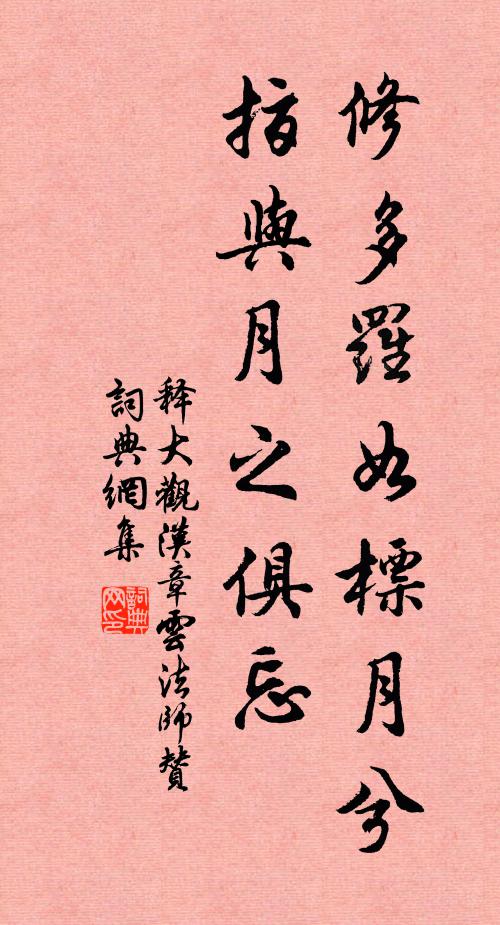 修多羅如標月兮
指與月之俱忘
释大觀漢章雲法師贊
詞典網集
詞典网印